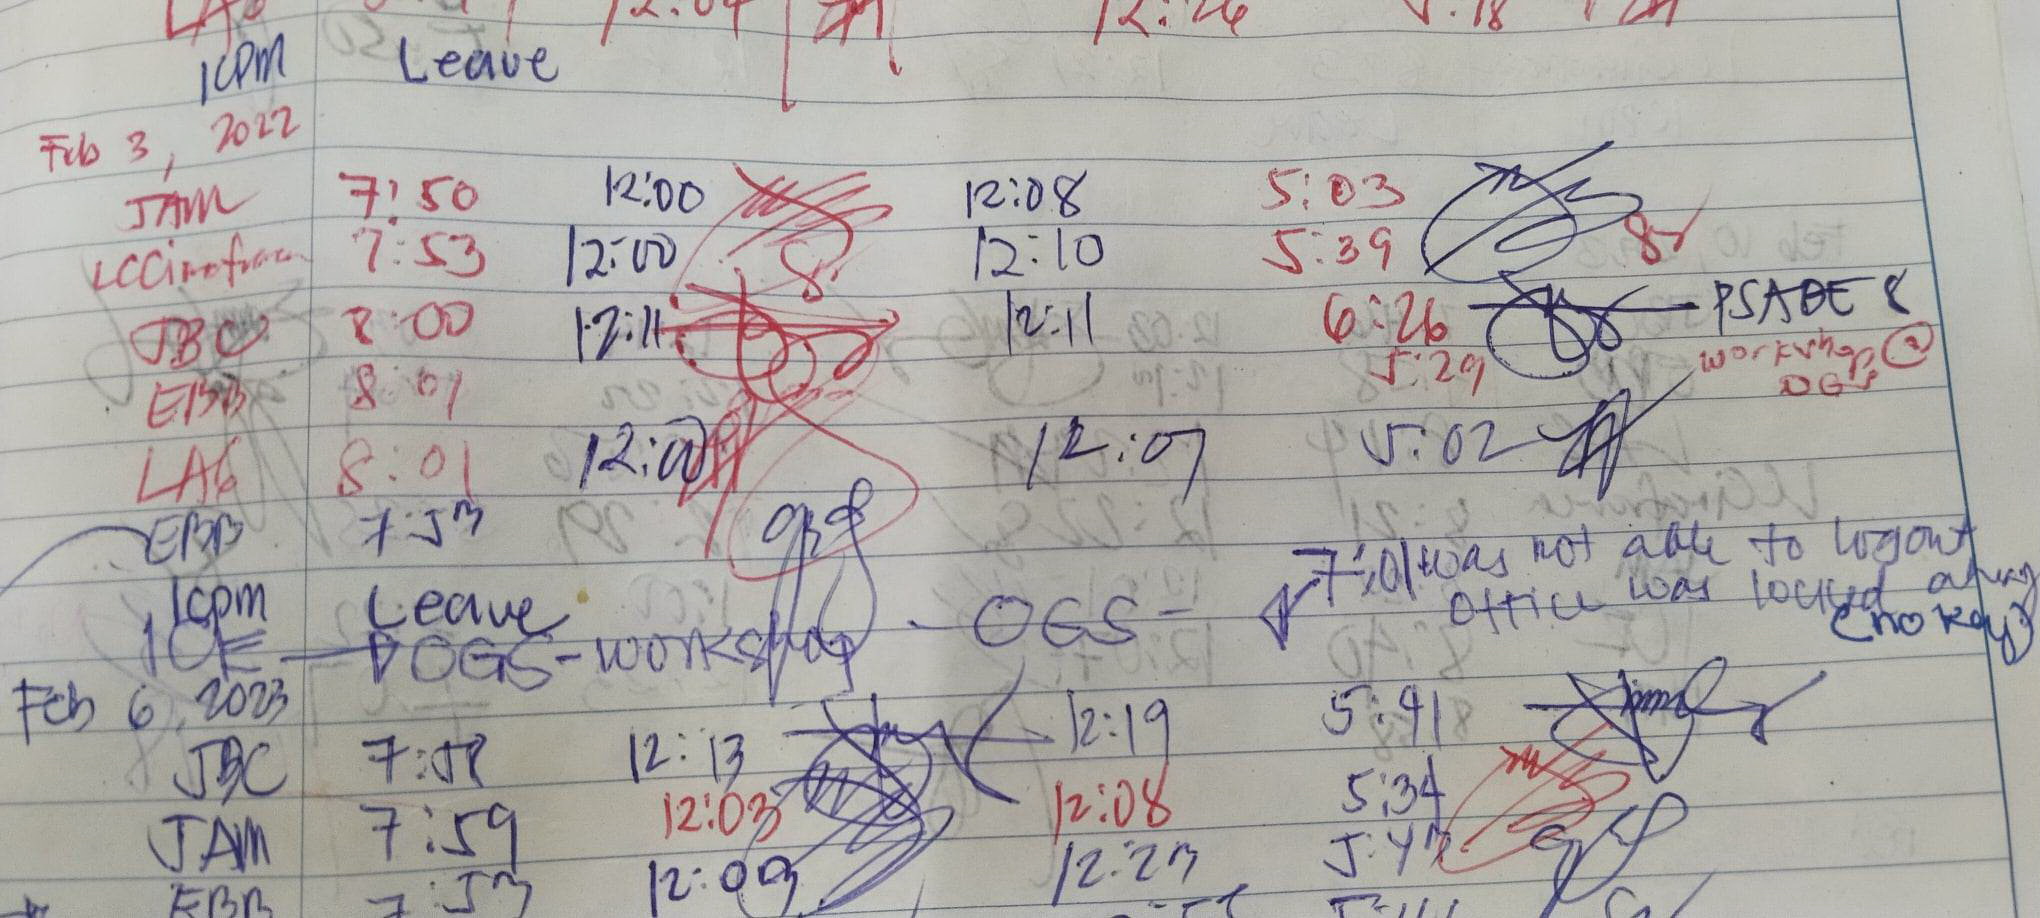 12:04 12:26 5:18
ICPM Leave
Feb 3, 2022
JAM 7:50 12:00 12:08 5:03
7:53 12:00 12:10 5:39 8
JBC 8:00 12:11 12:11 6:26 PSADE 8
EBB 8:01 5:29 workshop @
OGS
LAG 8:01 12:00 12:07 5:02
EBB 7:53 7:01 was not able to logout
ICPM Leave office was locked already
(no key)
IOE OGS-workshop - OGS -
Feb 6, 2023
JBC 7:58 12:13 12:19 5:41
JAM 7:59 12:03 12:08 5:34
EBB 7:53 12:09 12:23 5:43